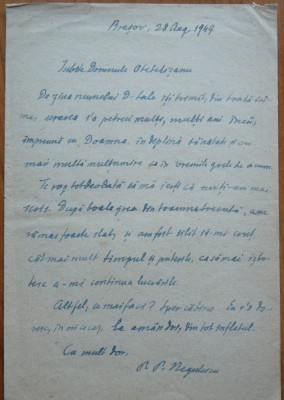 Brașov, 28 Aug. 1949
Iubite Domnule Otetelișanu
De ziua numelui D-tale îți trimit, din toată
urarea să petreci mulți, mulți ani încă,
împreună cu Doamna, în deplină sănătate și cu
mai multă mulțumire ca în vremile grele de acum.
Te rog totdeodată să mă ierți că nu ți-am mai
scris. După boala grea din toamna trecută, am
rămas foarte slab, și am fost silit să-mi cruț
cât mai mult timpul și puterile, ca să mai
a-mi continua lucrările.
Altfel, ce mai faci? Sper că bine. Eu v'o
doresc, în orice caz, la amândoi, din tot sufletul.
Cu mult dor,
P. P. Negulescu